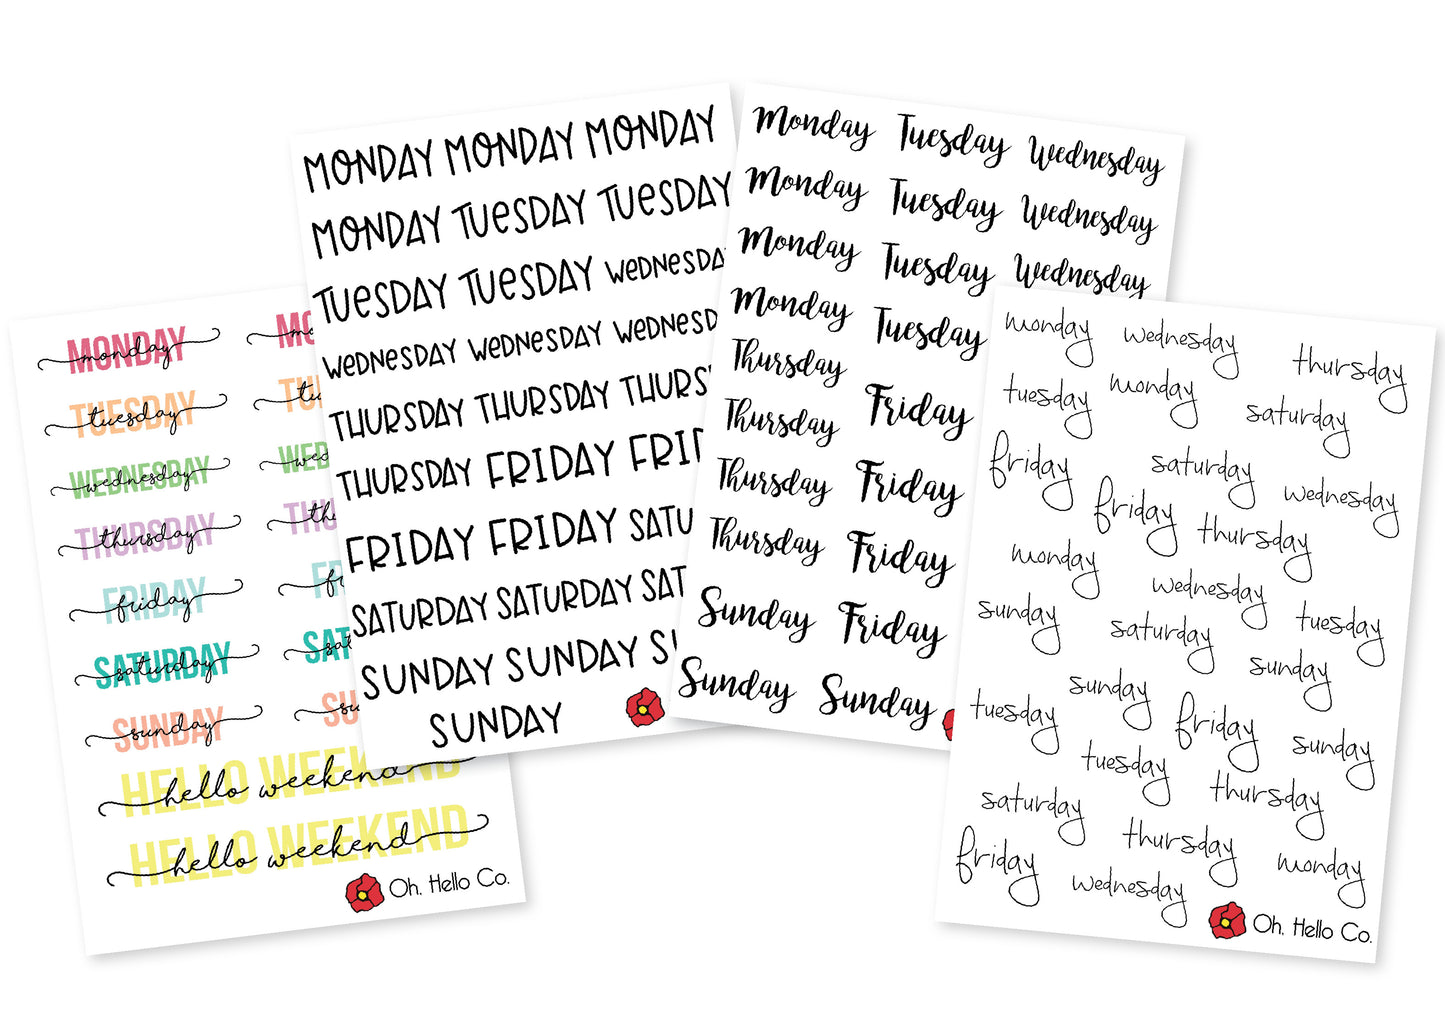 MONDAY
monday
TUESDAY
tuesday
WEDNESDAY
wednesday
THURSDAY
thursday
FRIDAY
friday
SATURDAY
saturday
SUNDAY
sunday
HELLO WEEKEND
hello weekend
HELLO WEEKEND
hello weekend
Oh. Hello Co.
MONDAY MONDAY MONDAY
MONDAY TUESDAY TUESDAY
TUESDAY TUESDAY WEDNESDA
WEDNESDAY WEDNESDAY WEDNESD
THURSDAY THURSDAY THURS
THURSDAY FRIDAY FRI
FRIDAY FRIDAY SATU
SATURDAY SATURDAY SAT
SUNDAY SUNDAY SU
SUNDAY
Monday Tuesday Wednesday
Monday Tuesday Wednesday
Monday Tuesday Wednesday
Monday Tuesday
Thursday Friday
Thursday
Thursday Friday
Thursday Friday
Sunday Friday
Sunday Sunday
monday wednesday thursday
tuesday monday saturday
friday saturday wednesday
friday thursday
monday wednesday tuesday
sunday saturday sunday
tuesday sunday friday sunday
tuesday thursday
saturday thursday monday
friday wednesday
Oh. Hello Co.